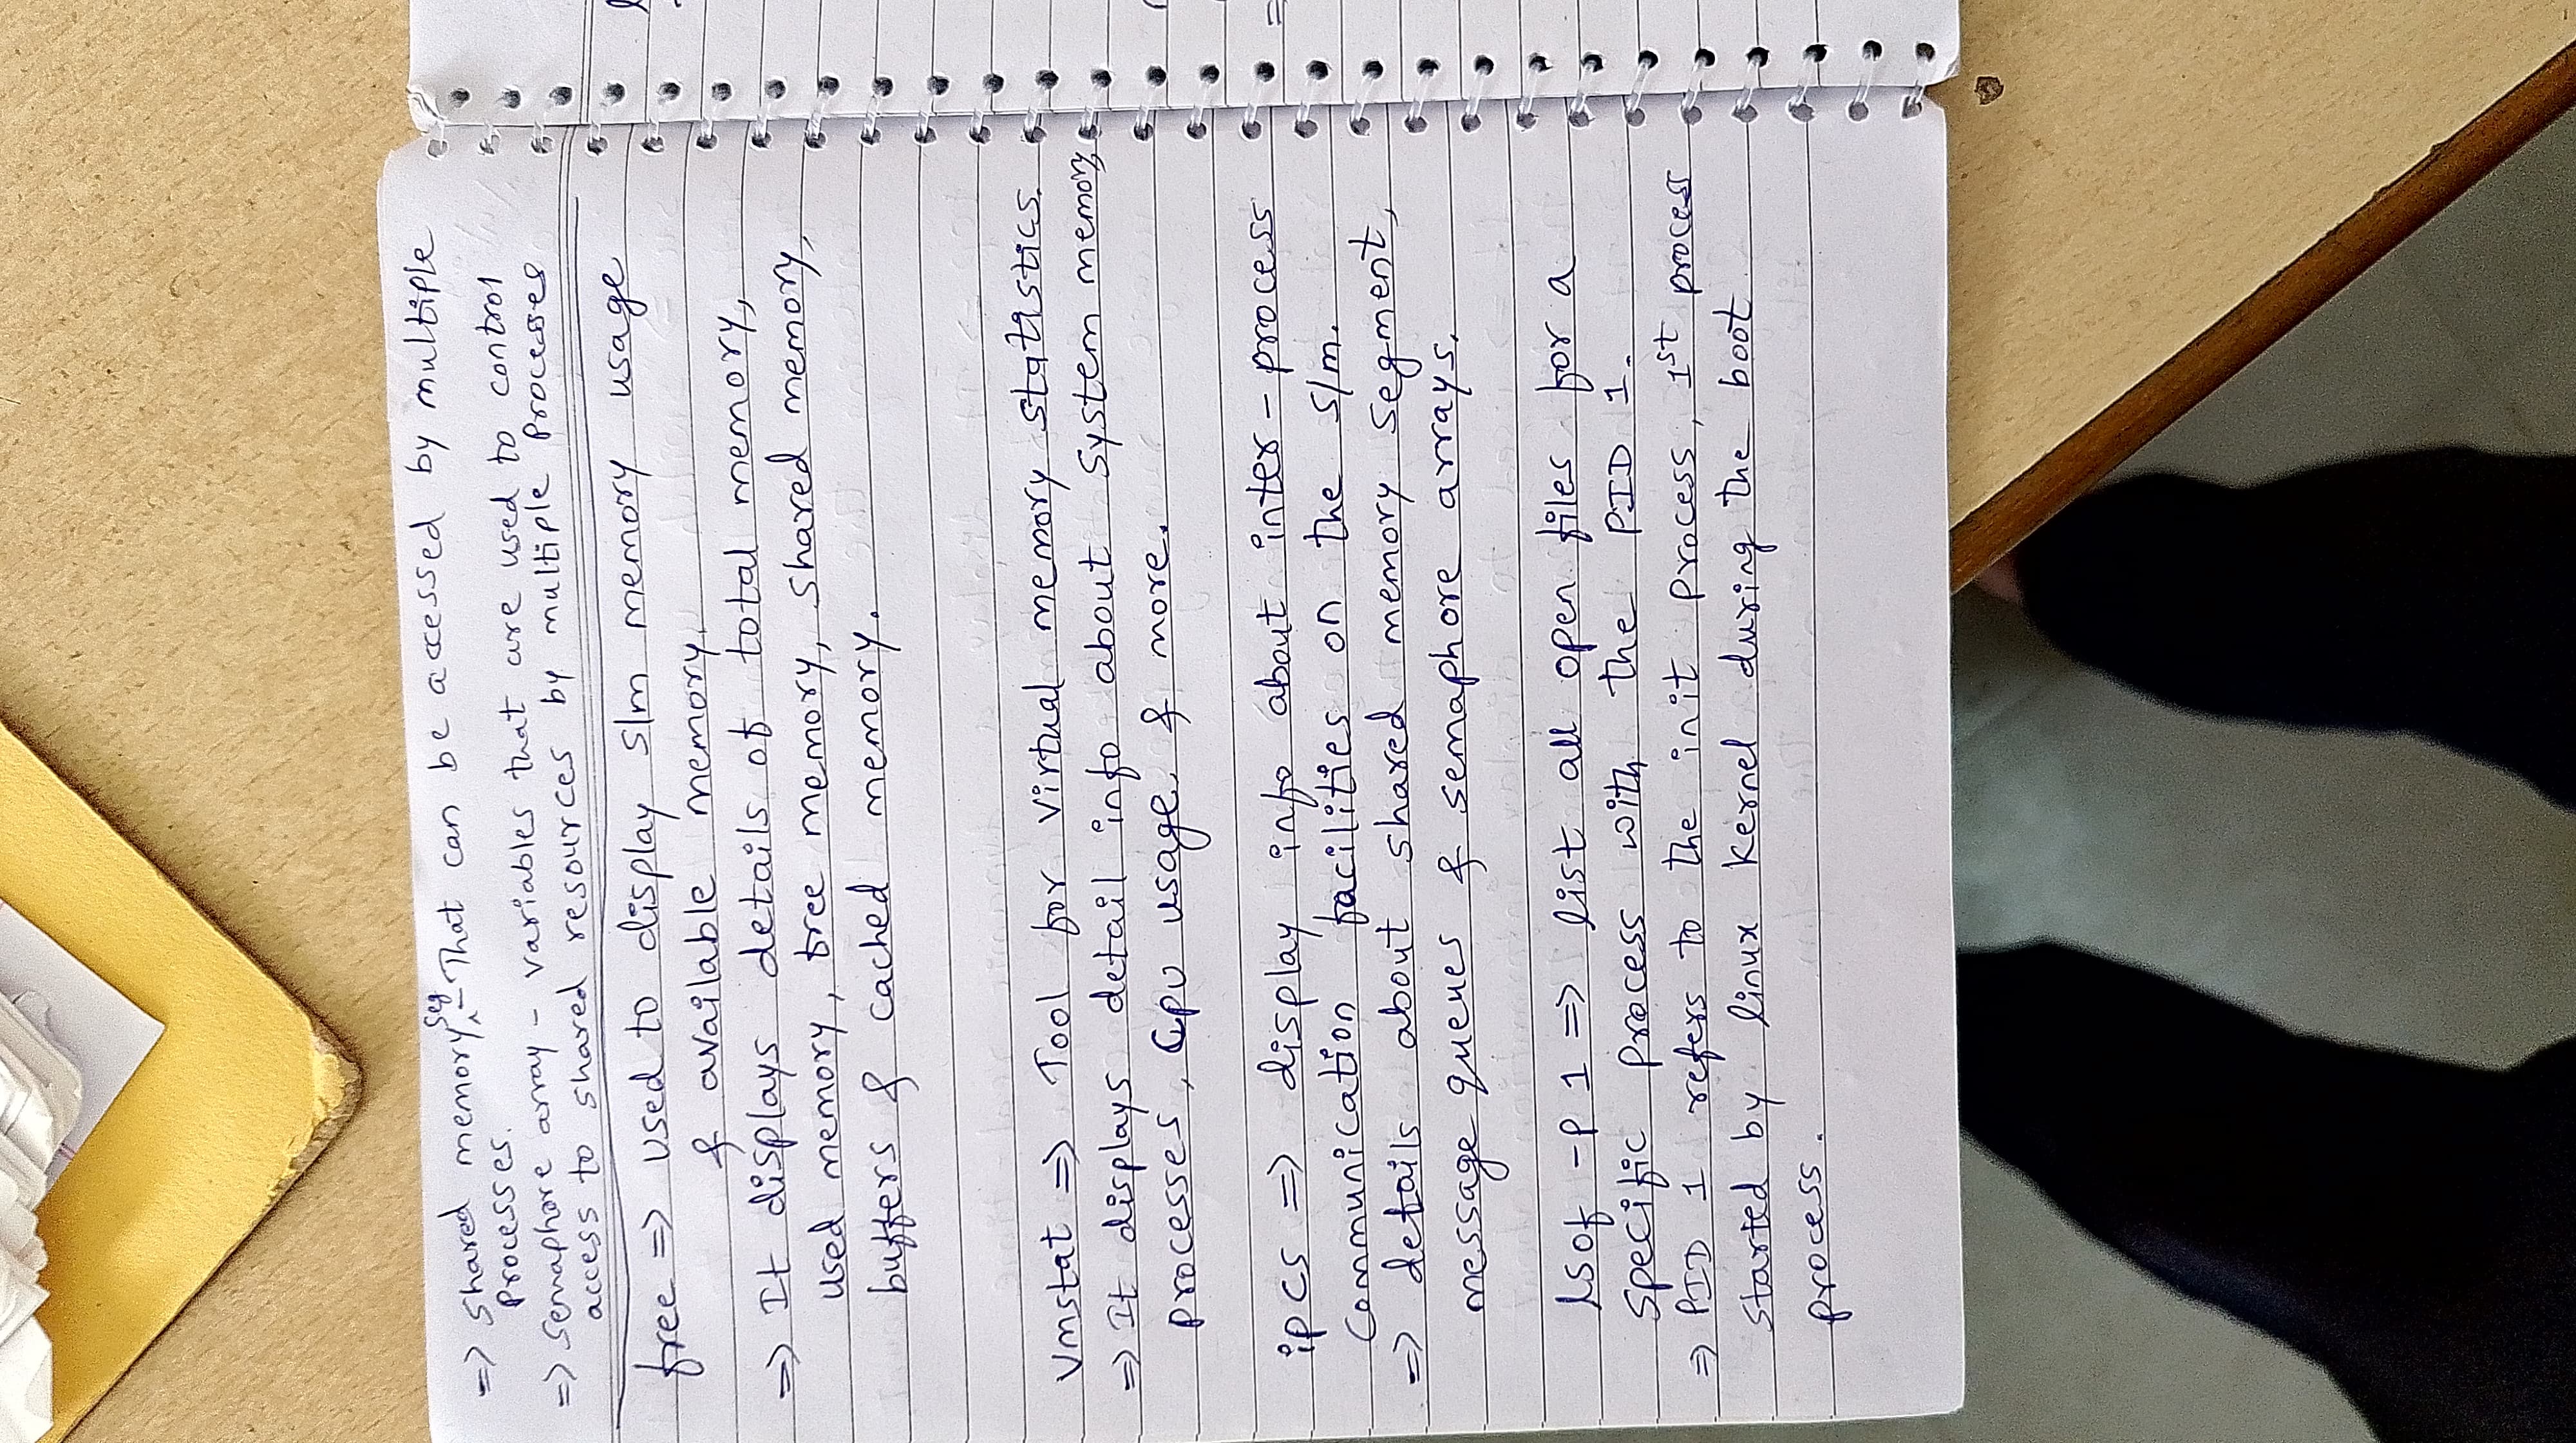 => shared memory seg - That can be accessed by multiple
processes.
=> Semaphore array - variables that are used to control
access to shared resources by multiple processes
free => used to display s/m memory usage
& available memory.
=> It displays details of total memory,
used memory, free memory, shared memory,
buffers & cached memory.
Vmstat => Tool for virtual memory statistics.
=> It displays detail info about system memory,
processes, Cpu usage, & more.
ipcs => display info about inter-process
Communication facilities on the s/m.
=> details about shared memory segment,
message queues & semaphore arrays.
lsof -P 1 => list all open files for a
Specific process with the PID 1.
=> PID 1 refers to the init process, 1st process
started by linux kernel during the boot
process.